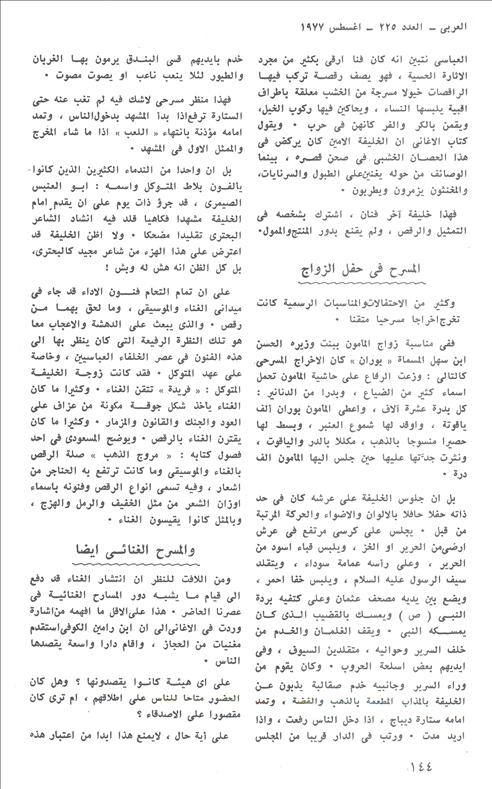 العربى - العدد ٢٢٥ - اغسطس ١٩٧٧
العباسى نتبين انه كان فنا ارقى بكثير من مجرد
الاثارة الحسية ، فهو يصف رقصة تركب فيها
الراقصات خيولا مسرجة من الخشب معلقة باطراف
اقبية يلبسها النساء ، ويحاكين فيها ركوب الخيل،
ويقمن بالكر والفر كأنهن فى حرب ٠ ويقول
كتاب الاغانى ان الخليفة الامين كان يركض فى
هذا العصان الخشبى فى صحن قصره ، بينما
الوصائف من حوله يغنين على الطبول والسرنايات،
والمخنثون يزمرون ويطربون ٠
فهذا خليفة آخر فنان ، اشترك بشخصه فى
التمثيل والرقص ، ولم يقنع بدور المنتج والممول٠
المسرح فى حفل الزواج
وكثير من الاحتفالات والمناسبات الرسمية كانت
تخرج اخراجا مسرحيا متقنا ٠
ففى مناسبة زواج المامون ببنت وزيره الحسن
ابن سهل المسماة « بوران » كان الاخراج المسرحى
كالتالى : وزعت الرقاع على حاشية المامون تحمل
اسماء كثير من الضياع ، وبدرا من الدنانير :
كل بدرة عشرة آلاف ، واعطى المامون بوران ألف
ياقوتة ، واوقد لها شموع العنبر ، وبسط لها
حصيرا منسوجا بالذهب ، مكللا بالدر والياقوت ،
ونثرت جدتها عليها حين جلس اليها المامون الف
درة ٠
بل ان جلوس الخليفة على عرشه كان فى حد
ذاته حفلا حافلا بالالوان والاضواء والحركة المرتبة
من قبل ٠ يجلس على كرسى مرتفع فى عرش
ارضى من الحرير او الخز ، ويلبس قباء اسود من
الحرير ، وعلى رأسه عمامة سوداء ، ويتقلد
سيف الرسول عليه السلام ، ويلبس خفا احمر ،
ويضع بين يديه مصحف عثمان وعلى كتفيه بردة
النبى ( ص ) ويمسك بالقضيب الذى كان
يمسكه النبى ٠ ويقف الغلمان والخدم من
خلف السرير وحواليه ، متقلدين السيوف ، وفى
ايديهم بعض اسلحة الحروب ٠ وكان يقوم من
وراء السرير وجانبيه خدم صقالبة يذبون عن
الخليفة بالمذاب المطعمة بالذهب والفضة ، وتمد
امامه ستارة ديباج ، اذا دخل الناس رفعت ، واذا
اريد مدت ٠ ورتب فى الدار قريبا من المجلس
خدم بايديهم قسى البندق يرمون بها الغربان
والطيور لئلا ينعب ناعب او يصوت مصوت ٠
فهذا منظر مسرحى لاشك فيه لم تغب عنه حتى
الستارة ترفع اذا بدأ المشهد بدخول الناس ، وتمد
امامه مؤذنة بانتهاء « اللعب » اذا ما شاء المخرج
والممثل الاول فى المشهد ٠
بل ان واحدا من الندماء الكثيرين الذين كانوا
يالفون بلاط المتوكل واسمه : ابو العنبس
الصيمرى ، قد جرؤ ذات يوم على ان يقدم امام
الخليفة مشهدا فكاهيا قلد فيه انشاد الشاعر
البحترى تقليدا مضحكا ٠ ولا اظن الخليفة قد
اعترض على هذا الهزء من شاعر مجيد كالبحترى،
بل كل الظن انه هش له وبش !
على ان تمام التحام فنون الاداء قد جاء فى
ميدانى الغناء والموسيقى ، وما لحق بهما من
رقص ٠ والذى يبعث على الدهشة والاعجاب معا
هو تلك النظرة الرفيعة التى كان ينظر بها الى
هذه الفنون فى عصر الخلفاء العباسيين ، وخاصة
على عهد المتوكل ٠ فقد كانت زوجة الخليفة
المتوكل : « فريدة » تتقن الغناء ٠ وكثيرا ما كان
الغناء يأخذ شكل جوقة مكونة من عزاف على
العود والجنك والقانون والمزمار ٠ وكثيرا ما كان
يقترن الغناء بالرقص ٠ ويوضح المسعودى فى احد
فصول كتابه : « مروج الذهب » صلة الرقص
بالغناء والموسيقى وما كانت ترتفع به الحناجر من
اشعار ، وفيه تسمى انواع الرقص وفنونه باسماء
اوزان الشعر من مثل الخفيف والرمل والهزج ،
وبالمثل كانوا يقيسون الغناء ٠
والمسرح الغنائى ايضا
ومن اللافت للنظر ان انتشار الغناء قد دفع
الى قيام ما يشبه دور المسارح الغنائية فى
عصرنا الحاضر ٠ هذا على الاقل ما افهمه من اشارة
وردت فى الاغانى الى ان ابن رامين الكوفى استقدم
مغنيات من الحجاز ، واقام دارا واسعة يقصدها
الناس ٠
على اى هيئة كانوا يقصدونها ؟ وهل كان
الحضور متاحا للناس على اطلاقهم ، ام ترى كان
مقصورا على الاصدقاء ؟
على أية حال ، لايمنع هذا ابدا من اعتبار هذه
١٤٤